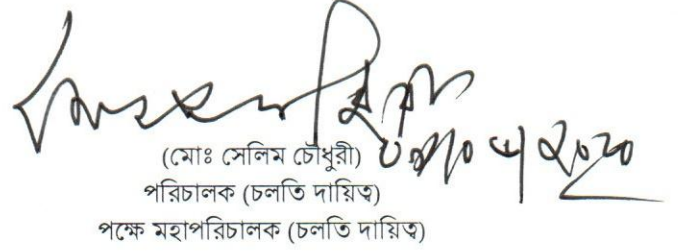 (মোঃ সেলিম চৌধুরী)
পরিচালক (চলতি দায়িত্ব)
পক্ষে মহাপরিচালক (চলতি দায়িত্ব)